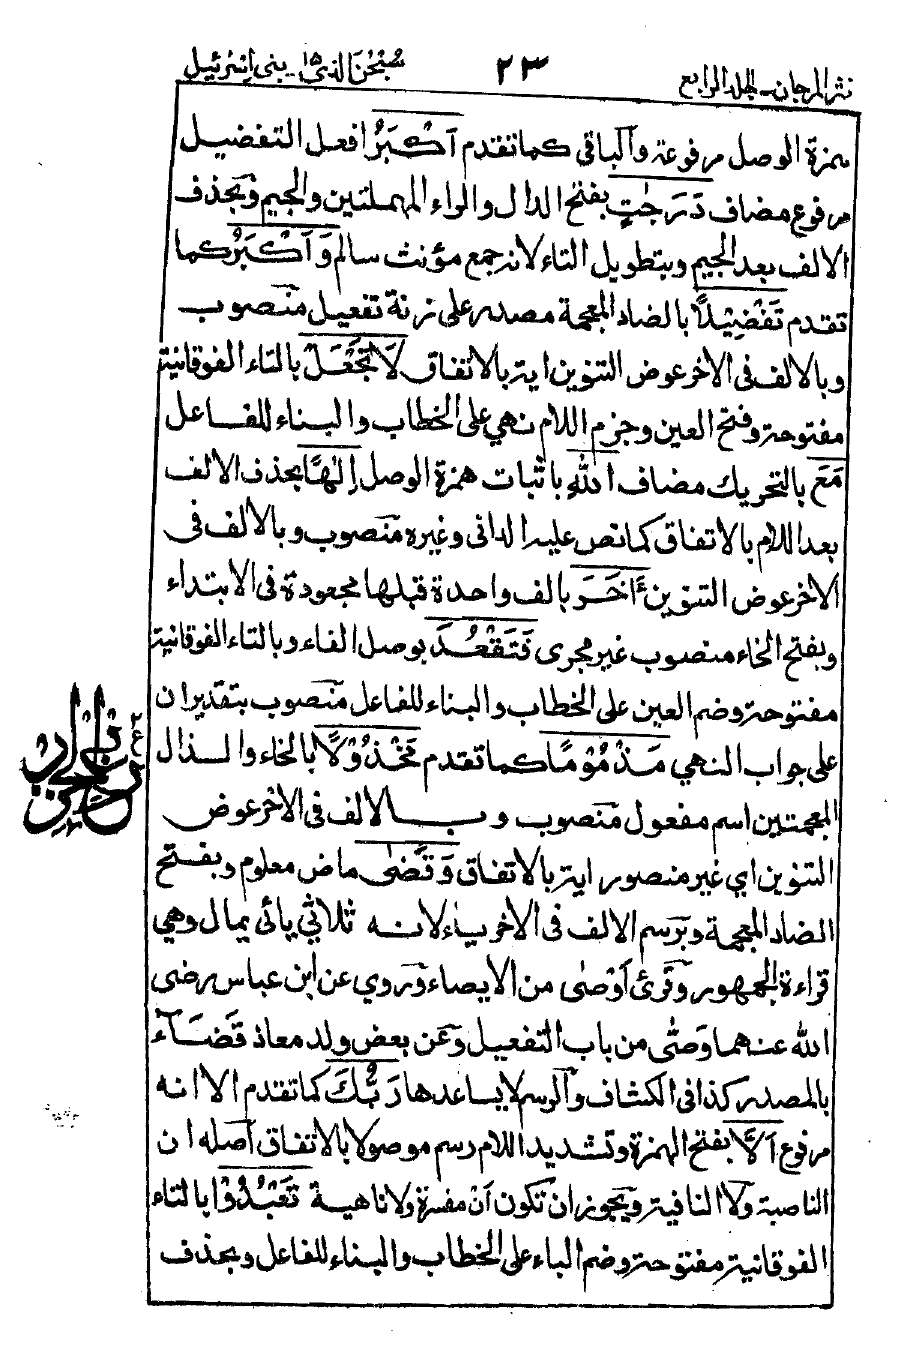 نثر المرجان۔ الجلد الرابع
٢٣
سُبْحٰنَ الذی ١٥ ۔ بنی إسرئیل
همزة الوصل مرفوعة والباقی کما تقدم اَکْبَرُ افعل التفضیل
مرفوع مضاف دَرَجٰتٍ بفتح الدال والراء المهملتین والجیم وبحذف
الالف بعد الجیم وبتطویل التاء لانه جمع مؤنث سالم وَاَکْبَرُ کما
تقدم تَفْضِیْلًا بالضاد المعجمة مصدر علی زنة تفعیل منصوب
وبالالف فی الاخر عوض التنوین ایة بالاتفاق لَا تَجْعَلْ بالتاء الفوقانیة
مفتوحة وفتح العین وجزم اللام نهی علی الخطاب والبناء للفاعل
مَعَ بالتحریك مضاف اللّٰهِ باثبات همزة الوصل اِلٰهًا بحذف الالف
بعد اللام بالاتفاق کما نص علیه الدانی وغیره منصوب وبالالف فی
الاخر عوض التنوین ءَاخَرَ بالف واحدة قبلها مجعودة فی الابتداء
وبفتح الخاء منصوب غیر مجری فَتَقْعُدَ بوصل الفاء وبالتاء الفوقانیة
مفتوحة وضم العین علی الخطاب والبناء للفاعل منصوب بتقدیر ان
علی جواب النهی مَذْمُوْمًا کما تقدم مَخْذُوْلًا بالخاء والذال
المعجمتین اسم مفعول منصوب وبالالف فی الاخر عوض
التنوین ای غیر منصور ایة بالاتفاق وَقَضٰی ماض معلوم وبفتح
الضاد المعجمة وبرسم الالف فی الاخر یاء لانه ثلاثی یائی یمال وهی
قراءة الجمهور وقرئ اَوْصٰی من الایصاء وروی عن ابن عباس رضی
الله عنهما وَصّٰی من باب التفعیل وعن بعض ولد معاذ قَضَآء
بالمصدر کذا فی الکشاف والرسم لا یساعدها رَبُّكَ کما تقدم الا انه
مرفوع اَلَّا بفتح الهمزة وتشدید اللام رسم موصولا بالاتفاق اصله ان
الناصبة ولا النافیة ویجوز ان تکون اَنْ مفسرة ولا ناهیة تَعْبُدُوْا بالتاء
الفوقانیة مفتوحة وضم الباء علی الخطاب والبناء للفاعل وبحذف